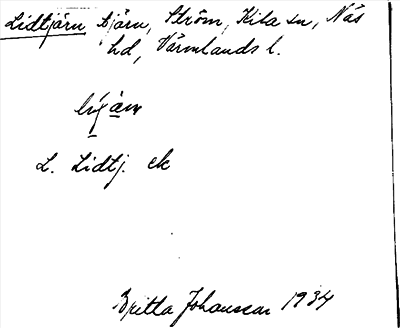 Lidtjärn tjärn, Ström, Kila sn, Näs
hd, Värmlands l.
L. Lidtj. ek
Britta Johansson 1934